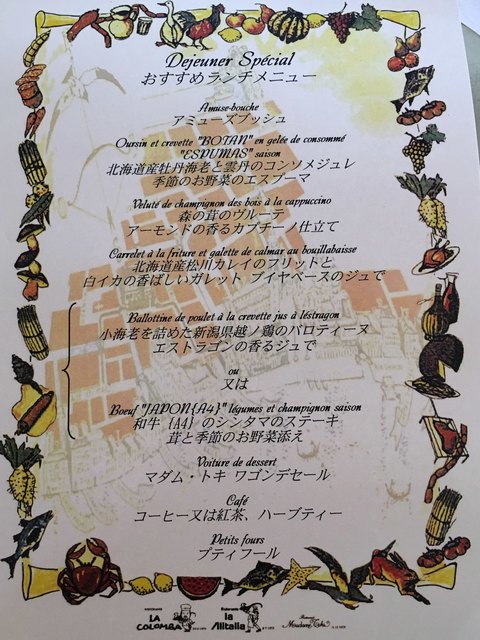 Dejeuner Spécial
おすすめランチメニュー
Amuse-bouche
アミューズブッシュ
Oursin et crevette "BOTAN" en gelée de consommé
"ESPUMAS" saison
北海道産牡丹海老と雲丹のコンソメジュレ
季節のお野菜のエスプーマ
Velute de champignon des bois à la cappuccino
森の茸のヴルーテ
アーモンドの香るカプチーノ仕立て
Carrelet à la friture et galette de calmar au bouillabaisse
北海道産松川カレイのフリットと
白イカの香ばしいガレット ブイヤベースのジュで
Ballottine de poulet à la crevette jus à léstragon
小海老を詰めた新潟県越ノ鶏のバロティーヌ
エストラゴンの香るジュで
ou
又は
Boeuf "JAPON{A4} légumes et champignon saison
和牛 {A4} のシンタマのステーキ
茸と季節のお野菜添え
Voiture de dessert
マダム・トキ ワゴンデセール
Café
コーヒー又は紅茶、ハーブティー
Petits fours
プティフール
LA COLOMBA
la Alitalia
Madame Toki